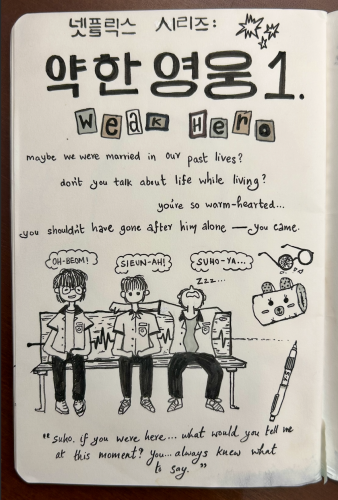 넷플릭스 시리즈:
약한영웅 1.
Weak Hero
maybe we were married in our past lives?
don't you talk about life while living?
you're so warm-hearted...
you shouldn't have gone after him alone — you came.
OH-BEOM! SIEUN-AH! SUHO-YA...
zzz...
"suho. if you were here... what would you tell me
at this moment? you... always knew what
to say."